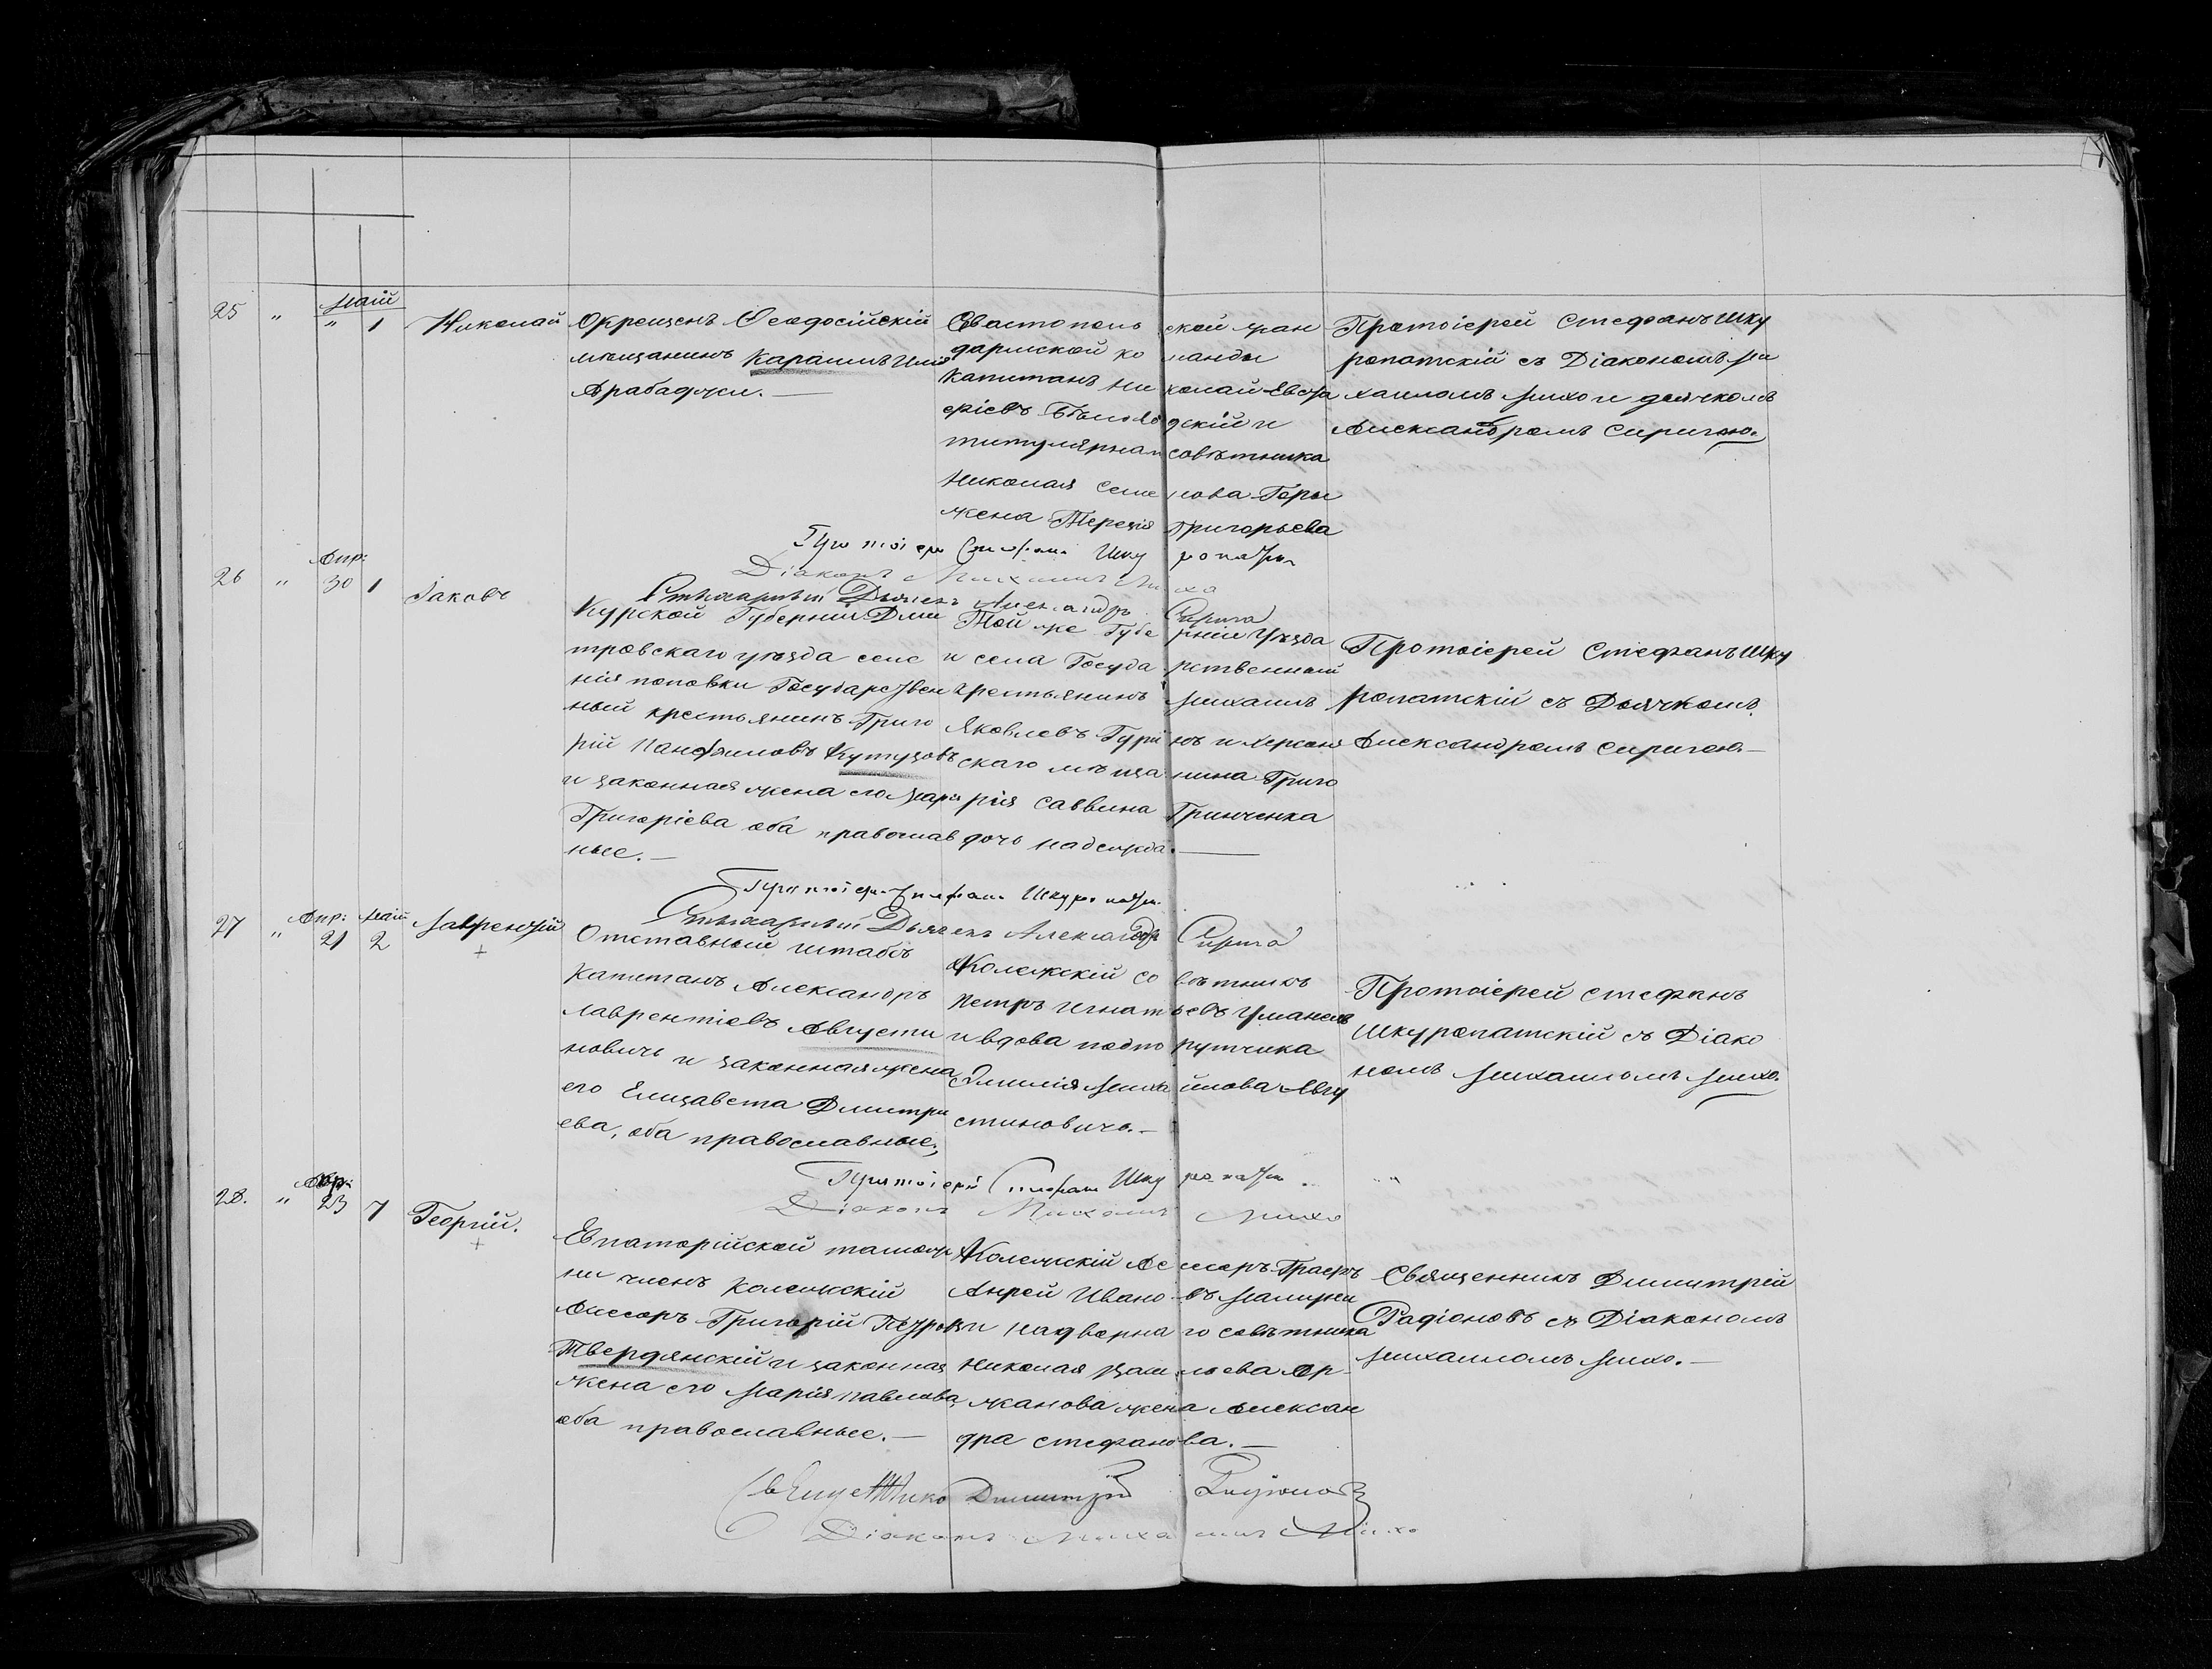 25 " Маій " 1 Николай
Окрещенъ Ѳеодосійскій
мѣщанинъ Караимъ
Арабаджи. —
Севастополь ской жан
дармской ко манды
Капитанъ Ни колай Евста
фіевъ
титулярнаго совѣтника
Николая Семе нова Геры
жена Терезія Григорьева
Протоіерей Стефанъ Шку
ропатскій съ Діакономъ Ми
хаиломъ Михо и дьячкомъ
Александромъ Сиригою.
Протоіерей Стефанъ Шку ропатск.
Діаконъ Михаилъ Михо
Стихарный Дьячекъ Александръ Сирига
26 " Апр: 30 1 Іаковъ
Курской Губерніи Дми
тровскаго уѣзда селе
нія поповки Государствен
ный крестьянинъ Григо
рій Панфиловъ Кутузовъ
и законная жена его Марія
Григоріева оба православ
ные. —
Той же Губе рніи Уѣзда
и села Госуда рственный
крестьянинъ Михаилъ
Яковлевъ Гурі нъ и херсон
скаго мѣща нина Григо
рія Саввина Гринченка
дочь Надежда. —
Протоіерей Стефанъ Шку
ропатскій съ Дьячкомъ
Александромъ Сиригою. —
Протоіерей Стефанъ Шкуропатск.
Стихарный Дьячекъ Александръ Сирига
27 " Апр: 21 Маій 2 Лаврентій
+
Отставный штабсъ
Капитанъ Александръ
Лаврентіевъ Августи
новичъ и законная жена
его Елизавета Дмитрі
ева, оба православные.
Колежскій со вѣтникъ
Петръ Игнат ьевъ Уманецъ
и вдова подпо рутчика
Эмилія Миха йлова Авгу
стиновичъ. —
Протоіерей Стефанъ
Шкуропатскій съ Діако
номъ Михаиломъ Михо.
Протоіерей Стефанъ Шку ропатск.
Діаконъ Михаилъ Михо
28. " Апр: 23 7 Георгій.
+
Евпаторійской таможе
ни членъ Колежскій
Ассесоръ Григорій Петровъ
Твердянскій и законная
жена его Марія Павлова,
оба православные. —
Колежскій Ас сесоръ Графъ
Андрей Ивано въ
и надворна го совѣтника
Николая Изма илова Ор-
жанова жена Алексан
дра Стефанова. —
Священникъ Димитрій
Радіоновъ съ Діакономъ
Михаиломъ Михо. —
Священникъ Димитрій Радіоновъ
Діаконъ Михаилъ Михо